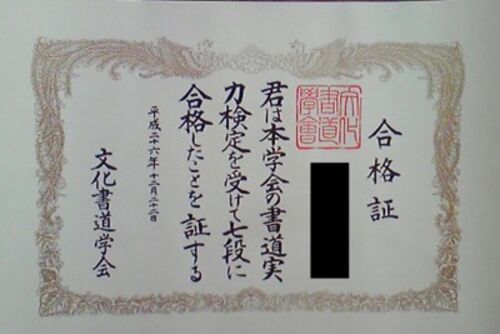 合格証
文化
書道
學會
君は本学会の書道実
力検定を受けて七段に
合格したことを証する
平成二十六年十二月二十二日
文化書道学会